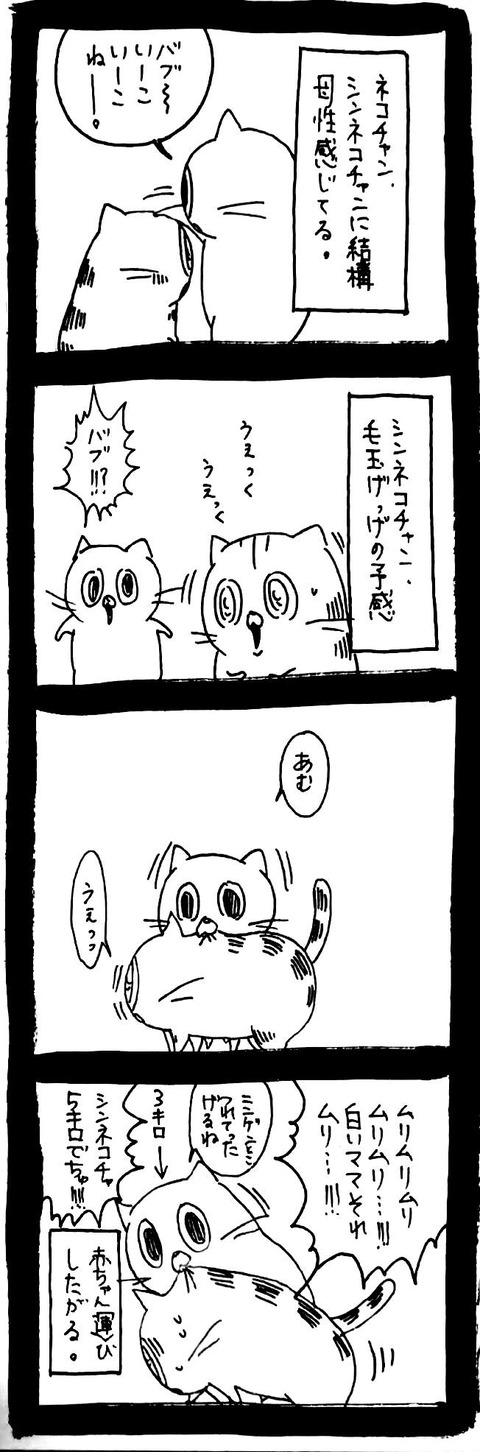 ネコチャン、
シンネコチャンに結構
母性感じてる。
バブ〜
いーこ
いーこ
ねー。
シンネコチャン、
毛玉げっげの予感
うぇっく
うぇっく
バブ!!?
あむ
うぇっっ
ムリムリムリ
ムリムリ…!!!
白いママそれ
ムリ…!!!
ニンゲンとこ
つれてった
げるね
3キロ→
シンネコチャ
5キロでちゅ!!!
赤ちゃん運び
したがる。